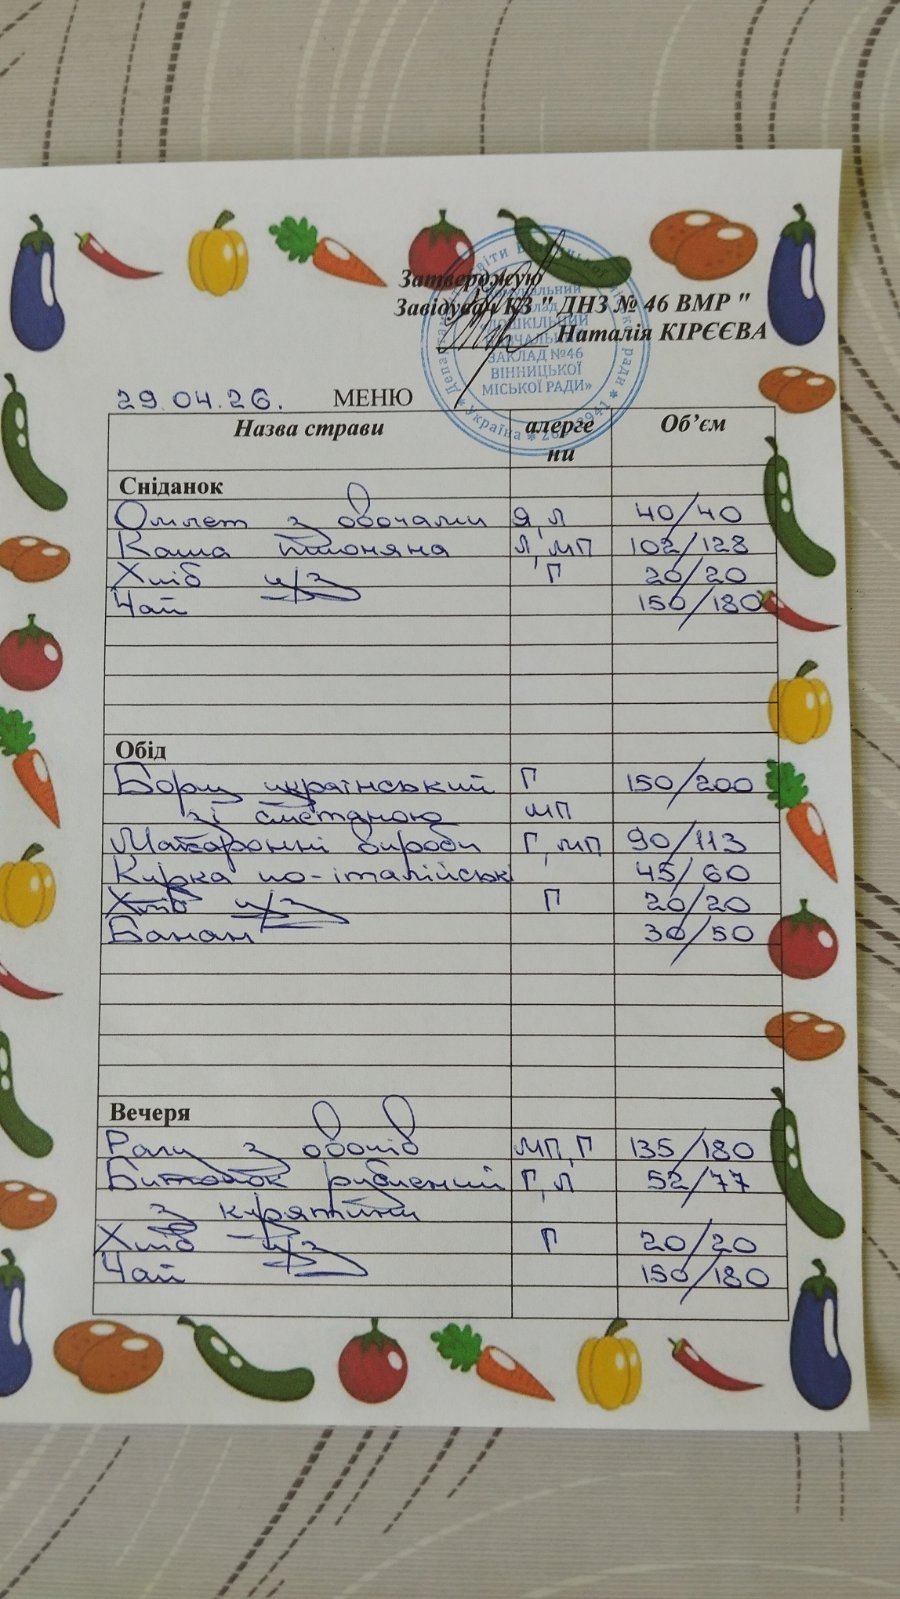 Затверджую
Завідувач КЗ " ДНЗ № 46 ВМР "
Наталія КІРЄЄВА
ЗАКЛАД №46
ВІННИЦЬКОЇ
МІСЬКОЇ РАДИ»
Україна
29.04.26. МЕНЮ
Назва страви алерге Об’єм
ни
Сніданок
Омлет з овочами Я, Л 40/40
Каша пшоняна Л, МП 102/128
Хліб ц/з Г 20/20
Чай 150/180
Обід
Борщ український Г 150/200
зі сметаною МП
Макаронні вироби Г, МП 90/113
Курка по-італійськи 45/60
Хліб ц/з Г 20/20
Банан 30/50
Вечеря
Рагу з овочів МП, Г 135/180
Биточок рублений Г, Л 52/77
з курятини
Хліб ц/з Г 20/20
Чай 150/180